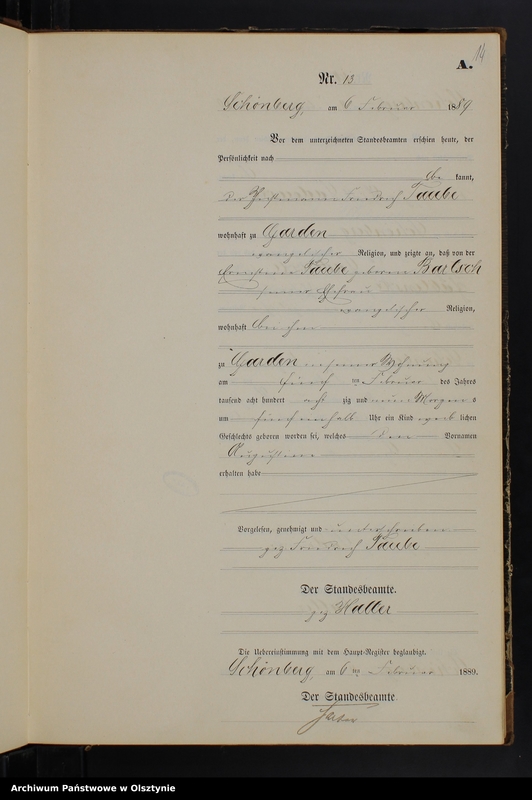 14
A.
Nr. 13
Schönberg, am 6 Februar 1889
Vor dem unterzeichneten Standesbeamten erschien heute, der
Persönlichkeit nach
be kannt,
der Friedrich Taube
wohnhaft zu Garden
evangelischer Religion, und zeigte an, daß von der
Ernestine Taube geborene Bartsch
seiner Ehefrau
evangelischer Religion,
wohnhaft bei ihm
zu Garden in seiner Wohnung
am fünften Februar des Jahres
tausend acht hundert acht zig und neun Morgen s
um fünf einhalb Uhr ein Kind weib lichen
Geschlechts geboren worden sei, welches den Vornamen
Augustine
erhalten habe
Vorgelesen, genehmigt und unterschrieben
gez Friedrich Taube
Der Standesbeamte.
gez Haller
Die Uebereinstimmung mit dem Haupt-Register beglaubigt.
Schönberg, am 6ten Februar 1889.
Der Standesbeamte
Archiwum Państwowe w Olsztynie